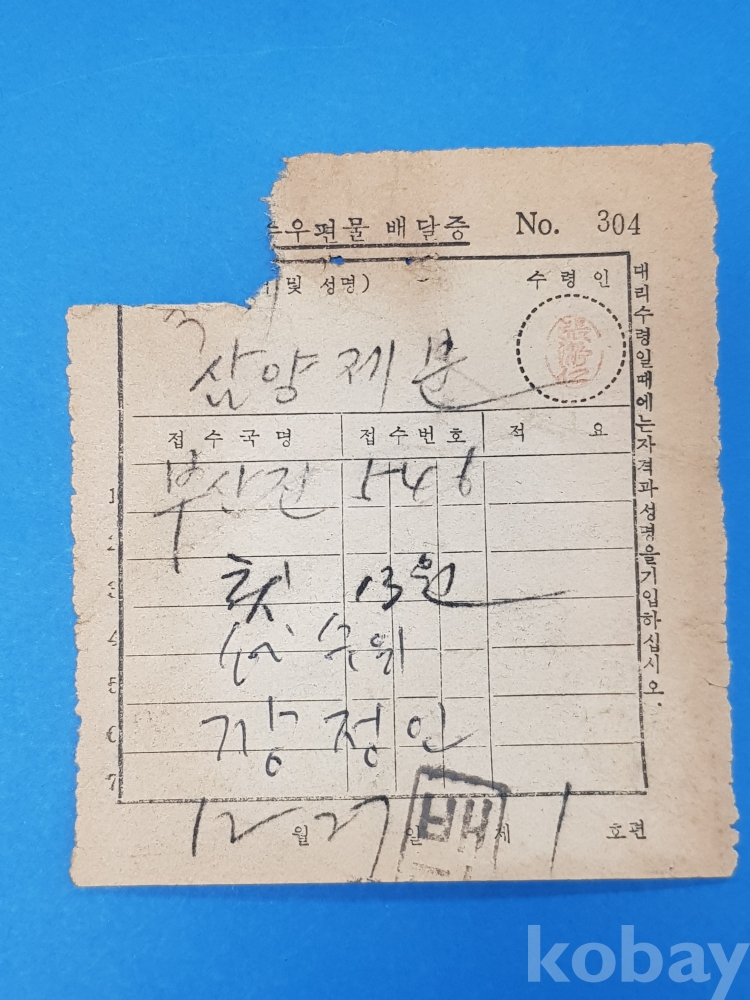 수우편물 배달증 No. 304
및 성명) 수령인
삼양제분
접수국명 접수번호 적 요
1 부산진 546
2
3 13원
4 수위
5
6 장정인
7
12월 27일 제 1 호편
대리수령일때에는자격과성명을기입하십시오.
kobay